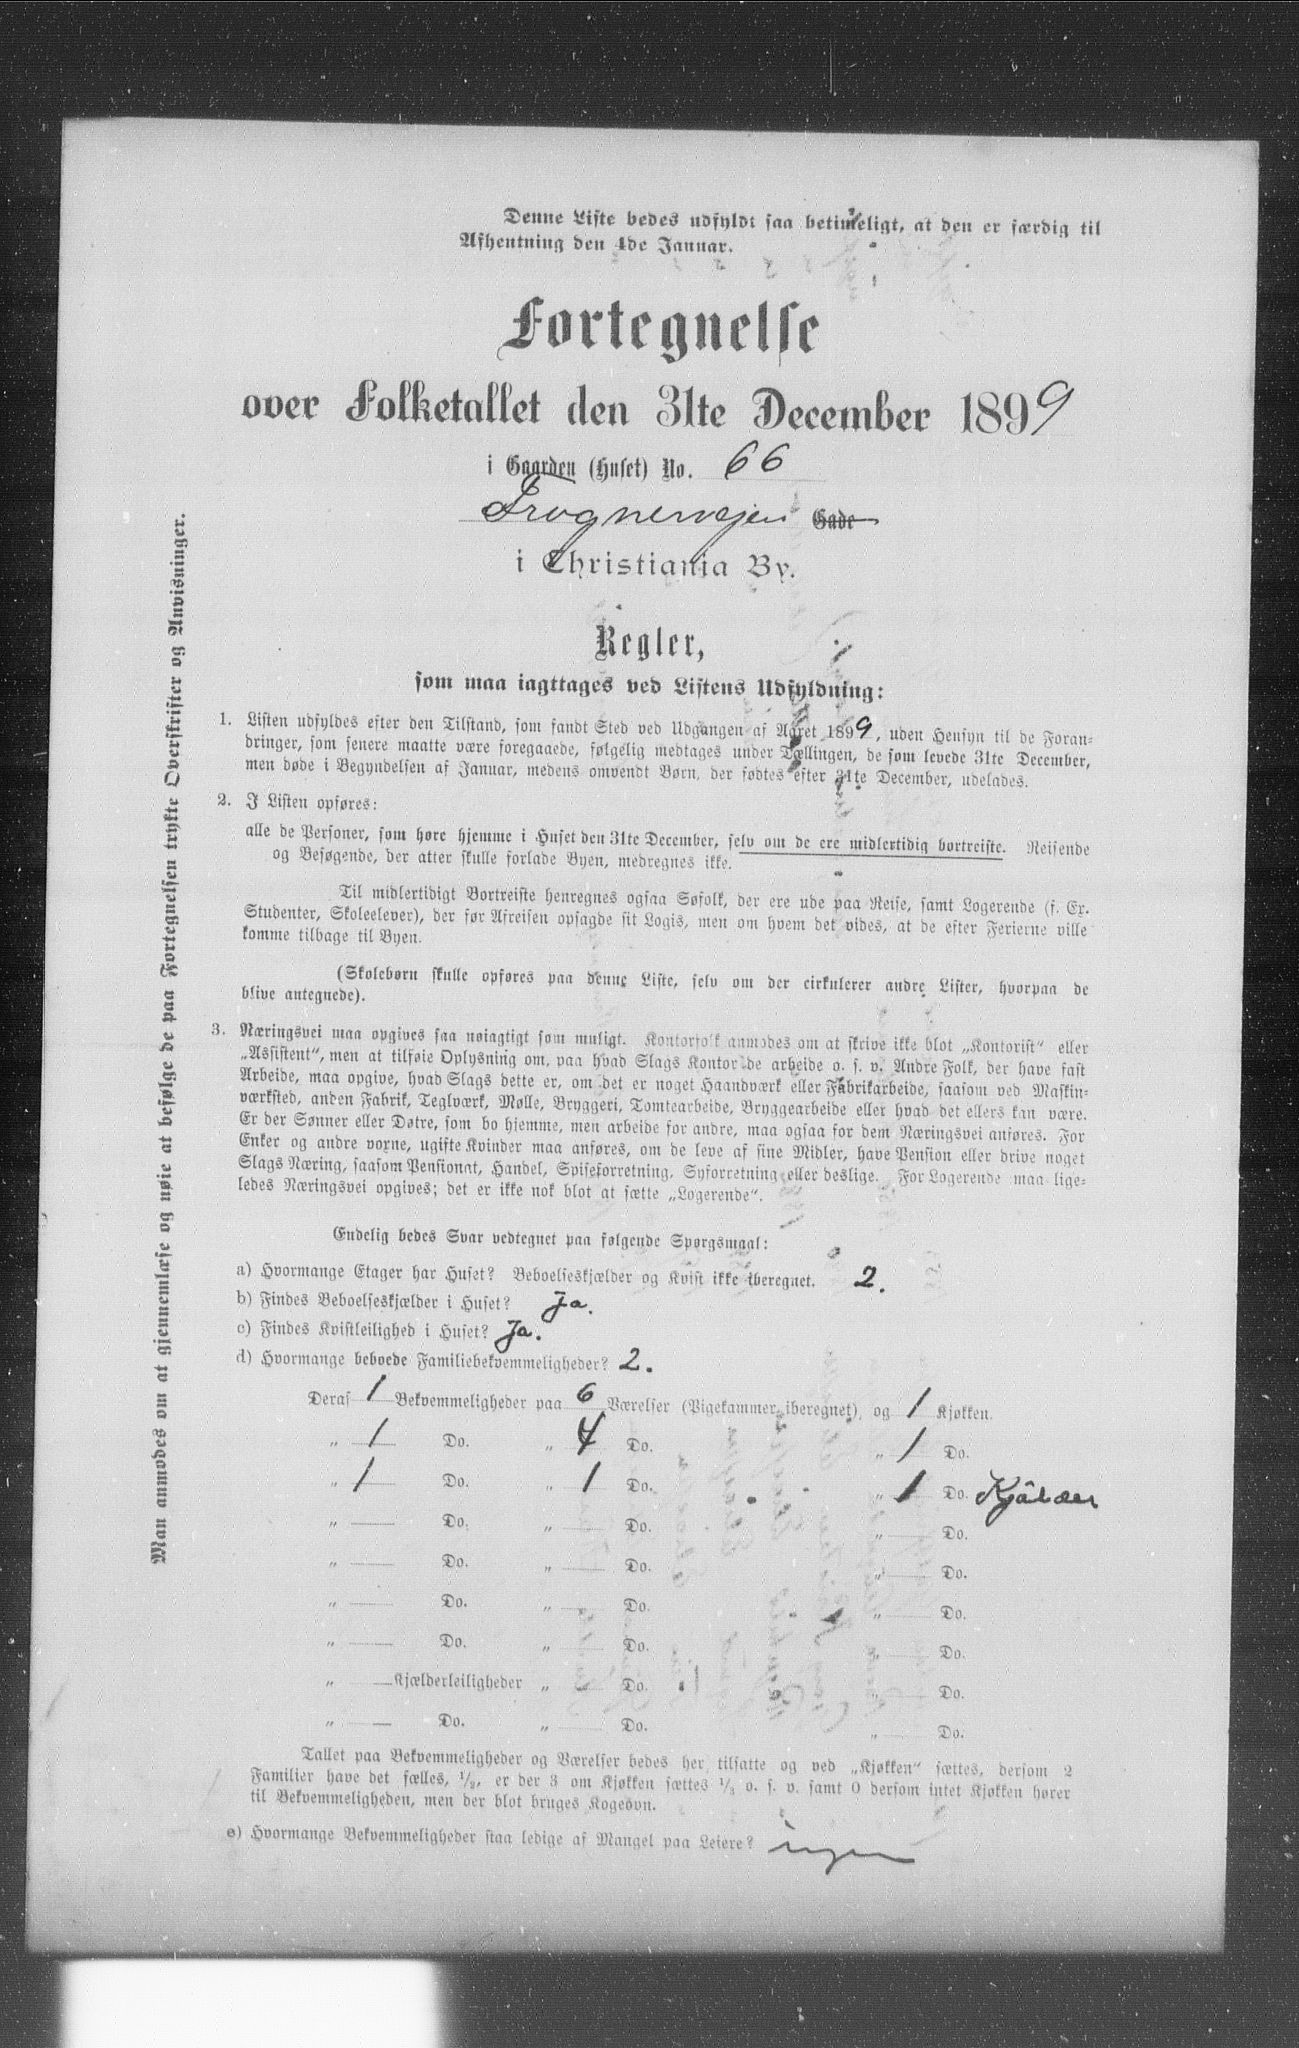 Denne Liste bedes udfyldt saa betimeligt, at den er færdig til
Afhentning den 4de Januar.
Fortegnelse
over Folketallet den 31te December 1899
i Gaarden (Huset) No. 66
Frognervejen Gade
i Christiania By.
Regler,
som maa iagttages ved Listens Udfyldning:
1. Listen udfyldes efter den Tilstand, som fandt Sted ved Udgangen af Aaret 1899, uden Hensyn til de Foran-
dringer, som senere maatte være foregaaede, følgelig medtages under Tællingen, de som levede 31te December,
men døde i Begyndelsen af Januar, medens omvendt Børn, der fødtes efter 31te December, udelades.
2. I Listen opføres:
alle de Personer, som høre hjemme i Huset den 31te December, selv om de ere midlertidig bortreiste. Reisende
og Besøgende, der atter skulle forlade Byen, medregnes ikke.
Til midlertidigt Bortreiste henregnes ogsaa Søfolk, der ere ude paa Reise, samt Logerende (f. Ex.
Studenter, Skoleelever), der før Afreisen opsagde sit Logis, men om hvem det vides, at de efter Ferierne ville
komme tilbage til Byen.
(Skolebørn skulle opføres paa denne Liste, selv om der cirkulerer andre Lister, hvorpaa de
blive antegnede).
3. Næringsvei maa opgives saa nøiagtigt som muligt. Kontorfolk anmodes om at skrive ikke blot „Kontorist“ eller
„Assistent“, men at tilføie Oplysning om, paa hvad Slags Kontor de arbeide o. s. v. Andre Folk, der have fast
Arbeide, maa opgive, hvad Slags dette er, om det er noget Haandværk eller Fabrikarbeide, saasom ved Maskin-
værksted, anden Fabrik, Teglværk, Mølle, Bryggeri, Tomtearbeide, Bryggearbeide eller hvad det ellers kan være.
Er der Sønner eller Døtre, som bo hjemme, men arbeide for andre, maa ogsaa for dem Næringsvei anføres. For
Enker og andre voxne, ugifte Kvinder maa anføres, om de leve af sine Midler, have Pension eller drive noget
Slags Næring, saasom Pensionat, Handel, Spiseforretning, Syforretning eller deslige. For Logerende maa lige-
ledes Næringsvei opgives; det er ikke nok blot at sætte „Logerende“.
Endelig bedes Svar vedtegnet paa følgende Spørgsmaal:
a) Hvormange Etager har Huset? Beboelseskjælder og Kvist ikke iberegnet. 2.
b) Findes Beboelseskjælder i Huset? Ja.
c) Findes Kvistleilighed i Huset? Ja.
d) Hvormange beboede Familiebekvemmeligheder? 2.
Deraf 1 Bekvemmeligheder paa 6 Værelser (Pigekammer iberegnet), og 1 Kjøkken.
„ 1 Do. „ 4 Do. „ 1 Do.
„ 1 Do. „ 1 Do. „ 1 Do. Kjälder
„ Do. „ Do. „ Do.
„ Do. „ Do. „ Do.
„ Do. „ Do. „ Do.
„ Do. „ Do. „ Do.
„ Kjælderleiligheder „ Do. „ Do.
„ Do. „ Do. „ Do.
Tallet paa Bekvemmeligheder og Værelser bedes her tilsatte og ved „Kjøkken“ sættes, dersom 2
Familier have det fælles, 1/2, er der 3 om Kjøkken sættes 1/3 o. s. v. samt 0 dersom intet Kjøkken hører
til Bekvemmeligheden, men der blot bruges Kogeovn.
e) Hvormange Bekvemmeligheder staa ledige af Mangel paa Leiere? ingen
Man anmodes om at gjennemlæse og nøie at befølge de paa Fortegnelsen trykte Overskrifter og Anvisninger.